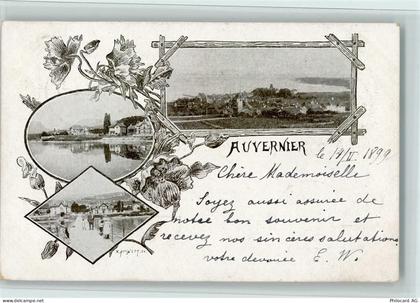 AUVERNIER
le 14/II 1899
Chère Mademoiselle
Soyez aussi assurée de
notre bon souvenir et
recevez nos sincères salutations
votre dévouée E. W.